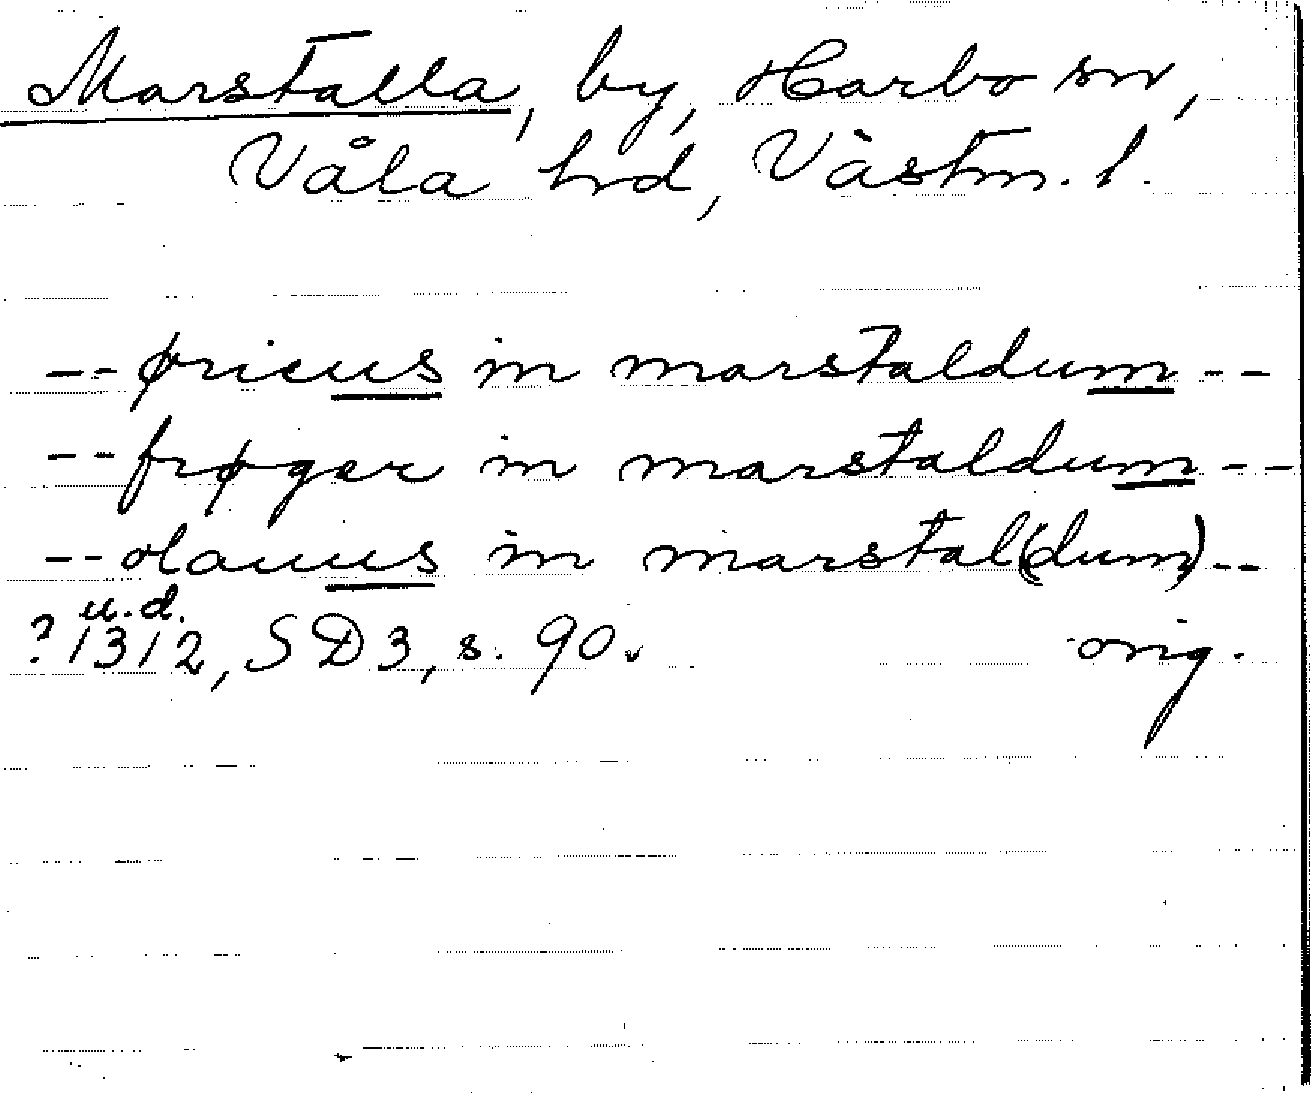 Marstalla, by, Harbo sn,
Våla hrd, Västm. l.
-- øricus in marstaldum --
-- frøger in marstaldum --
-- olauus in marstal(dum) --
u.d.
? 1312, SD 3, s. 90. orig.